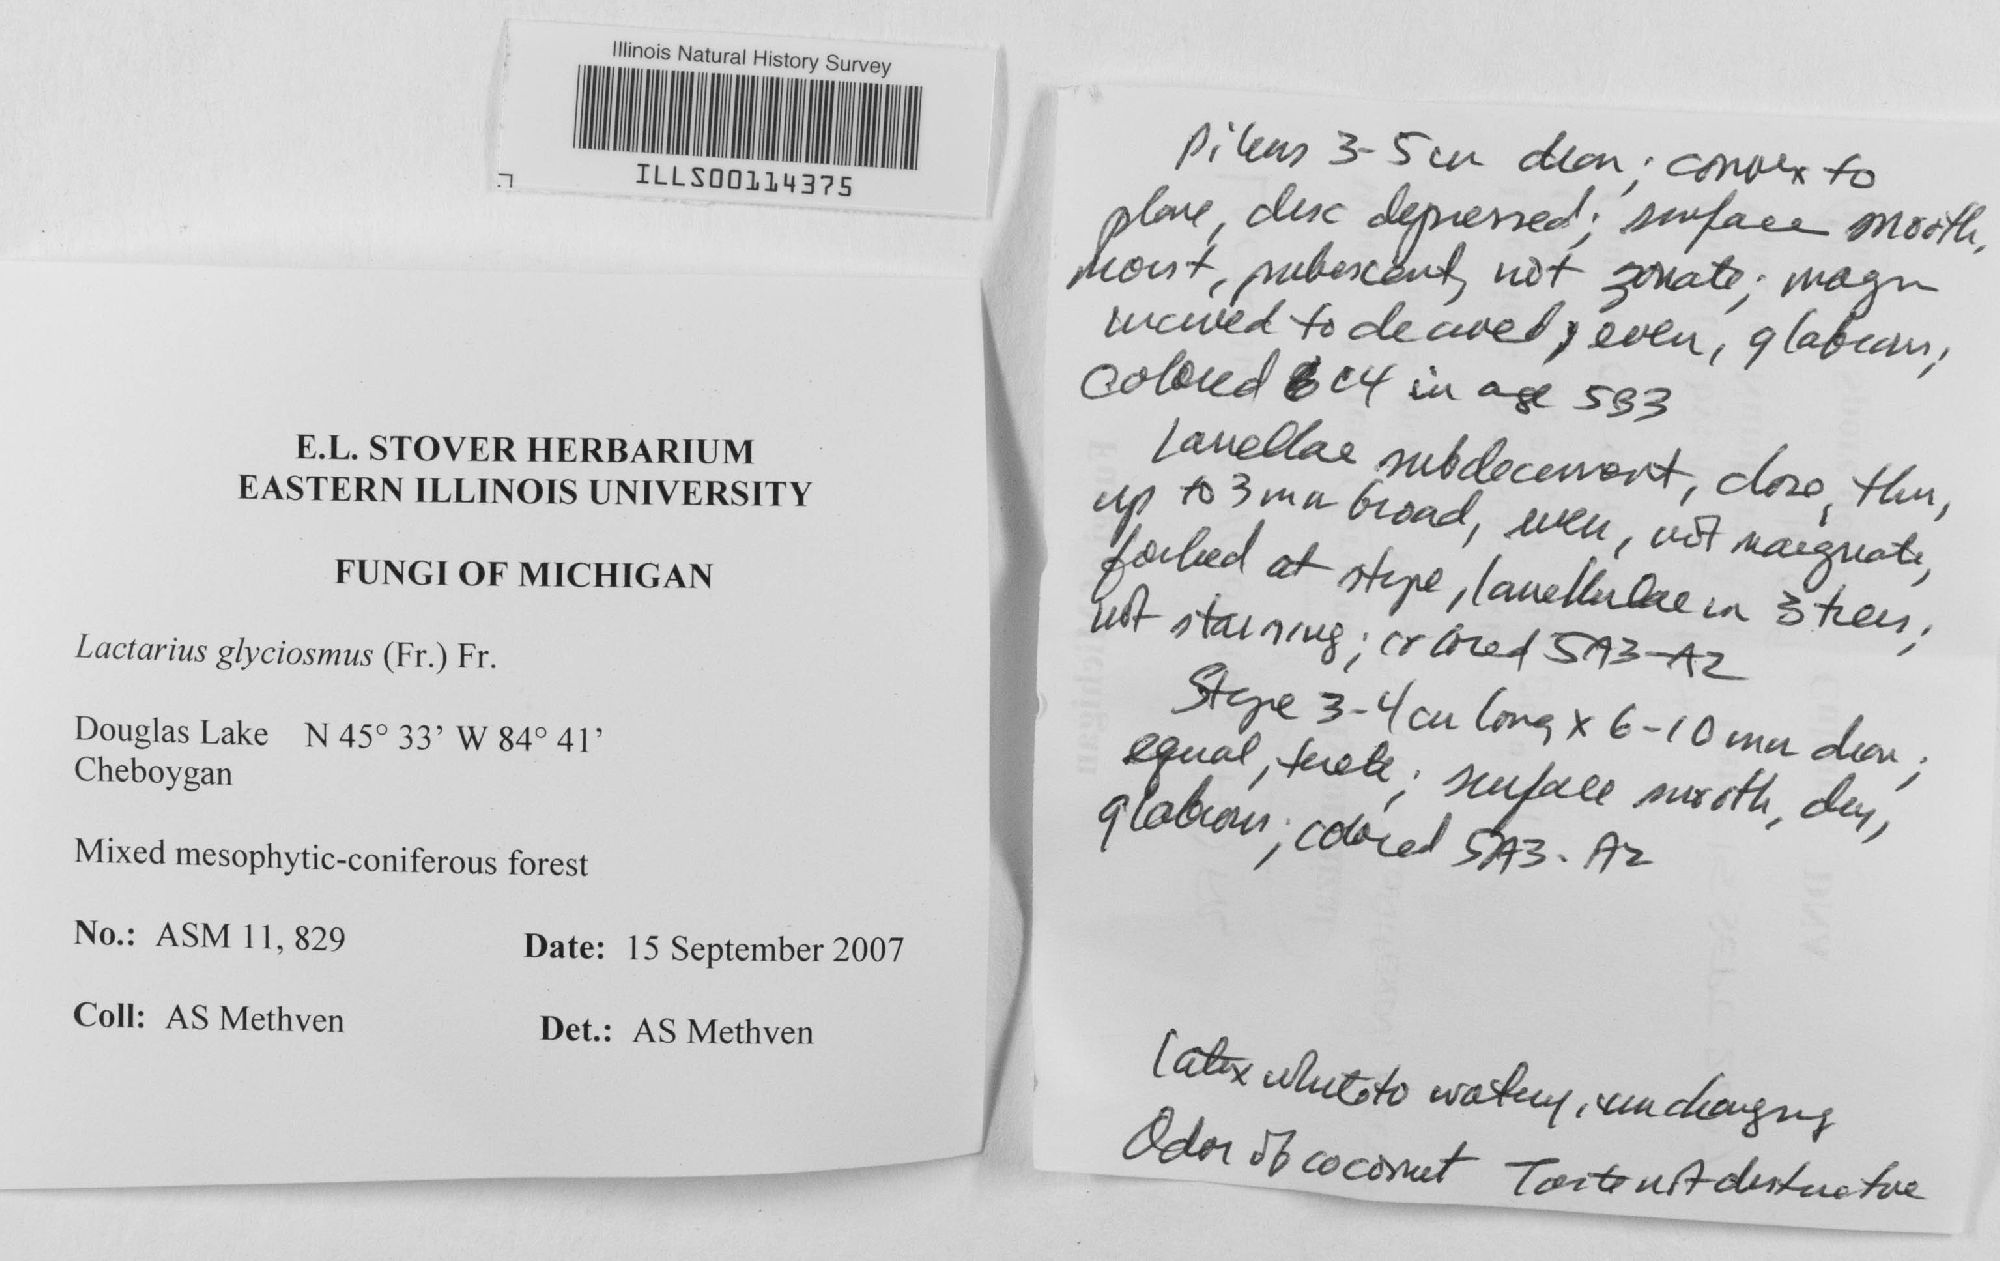 Illinois Natural History Survey
ILLS00114375
E.L. STOVER HERBARIUM
EASTERN ILLINOIS UNIVERSITY
FUNGI OF MICHIGAN
Lactarius glyciosmus (Fr.) Fr.
Douglas Lake N 45° 33' W 84° 41'
Cheboygan
Mixed mesophytic-coniferous forest
No.: ASM 11, 829 Date: 15 September 2007
Coll: AS Methven Det.: AS Methven
Pileus 3-5 cm diam; convex to
plane, disc depressed; surface smooth,
moist, pubescent, not zonate; margin
incurved to decurved; even, glabrous,
colored 6C4 in age 5B3
Lamellae subdecurrent, close, thin,
up to 3 mm broad, even, not marginate,
forked at stipe, lamellulae in 3 tiers;
not staining; colored 5A3-A2
Stipe 3-4 cm long x 6-10 mm diam;
equal, terete; surface smooth, dry,
glabrous; colored 5A3-A2
latex white to watery, unchanging
Odor of coconut Taste not distinctive